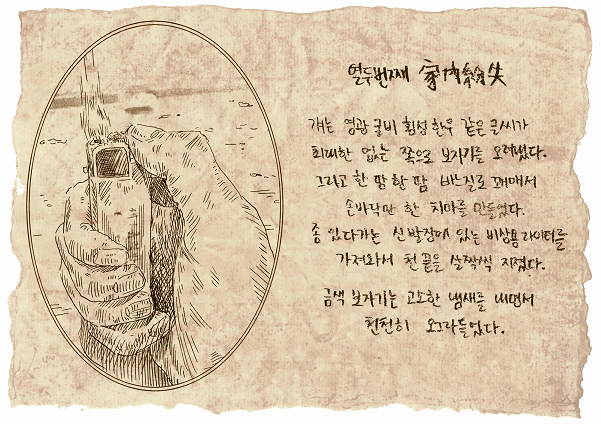 열두번째
걔는 영광 굴비 횡성 한우 같은 글씨가
최대한 없는 쪽으로 보자기를 오려냈다.
그리고 한 땀 한 땀 바느질로 꿰매서
손바닥만 한 치마를 만들었다.
좀 있다가는 신발장에 있는 비상용 라이터를
가져와서 천 끝을 살짝씩 지졌다.
금색 보자기는 고소한 냄새를 내면서
천천히 오그라들었다.